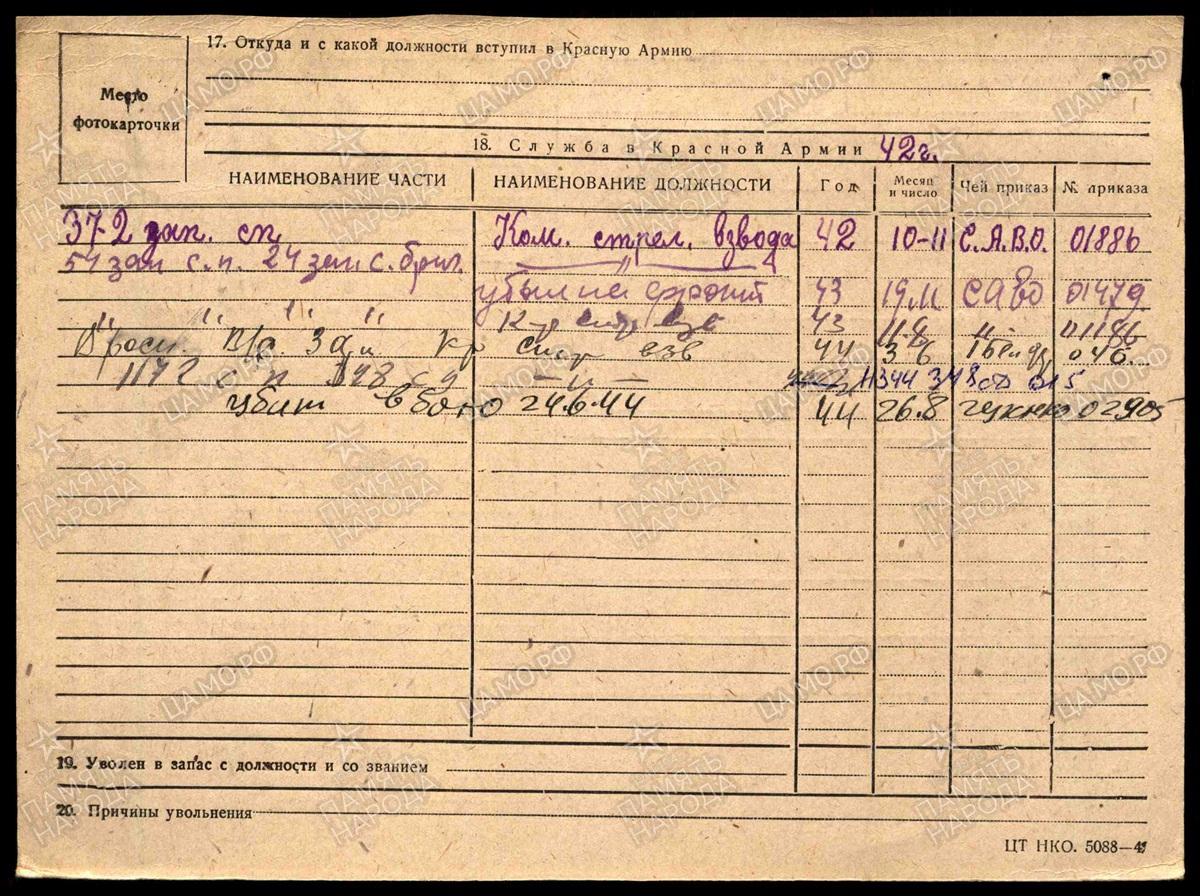 17. Откуда и с какой должности вступил в Красную Армию
Место
фотокарточки
18. Служба в Красной Армии 42г.
НАИМЕНОВАНИЕ ЧАСТИ НАИМЕНОВАНИЕ ДОЛЖНОСТИ Год Месяц и число Чей приказ № приказа
372 зап. сп Ком. стрел. взвода 42 10-11 С.А.В.О. 01886
54 зап с.п. 24 зап с. бриг. — " —
убыл на фронт 43 19.11 САВО 01479
" " " " К-р стр взв 43 " 01186
К-р стр взв 44 3 6 1 Бел ф
1172 с п 348 с д — " — 348 сд 015
убит в бою 24.6.44 44 26.8 гукнко 02905
19. Уволен в запас с должности и со званием
20. Причины увольнения
ЦТ НКО. 5088—4
ЦАМО.РФ
ПАМЯТЬ
НАРОДА